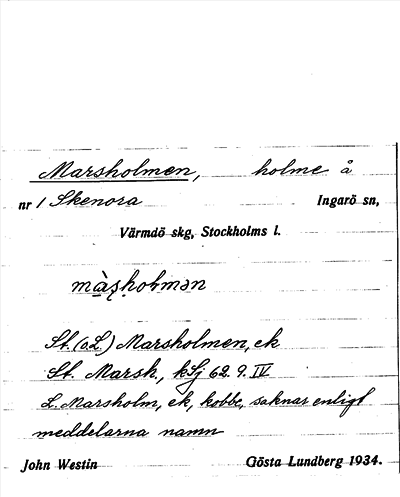 Marsholmen, holme å
nr 1 Skenora Ingarö sn,
Värmdö skg, Stockholms l.
St. (o L.) Marsholmen, ek
St. Marsh., kSj 62. 9. IV
L. Marsholm, ek, kobbe, saknar enligt
meddelarna namn
John Westin Gösta Lundberg 1934.